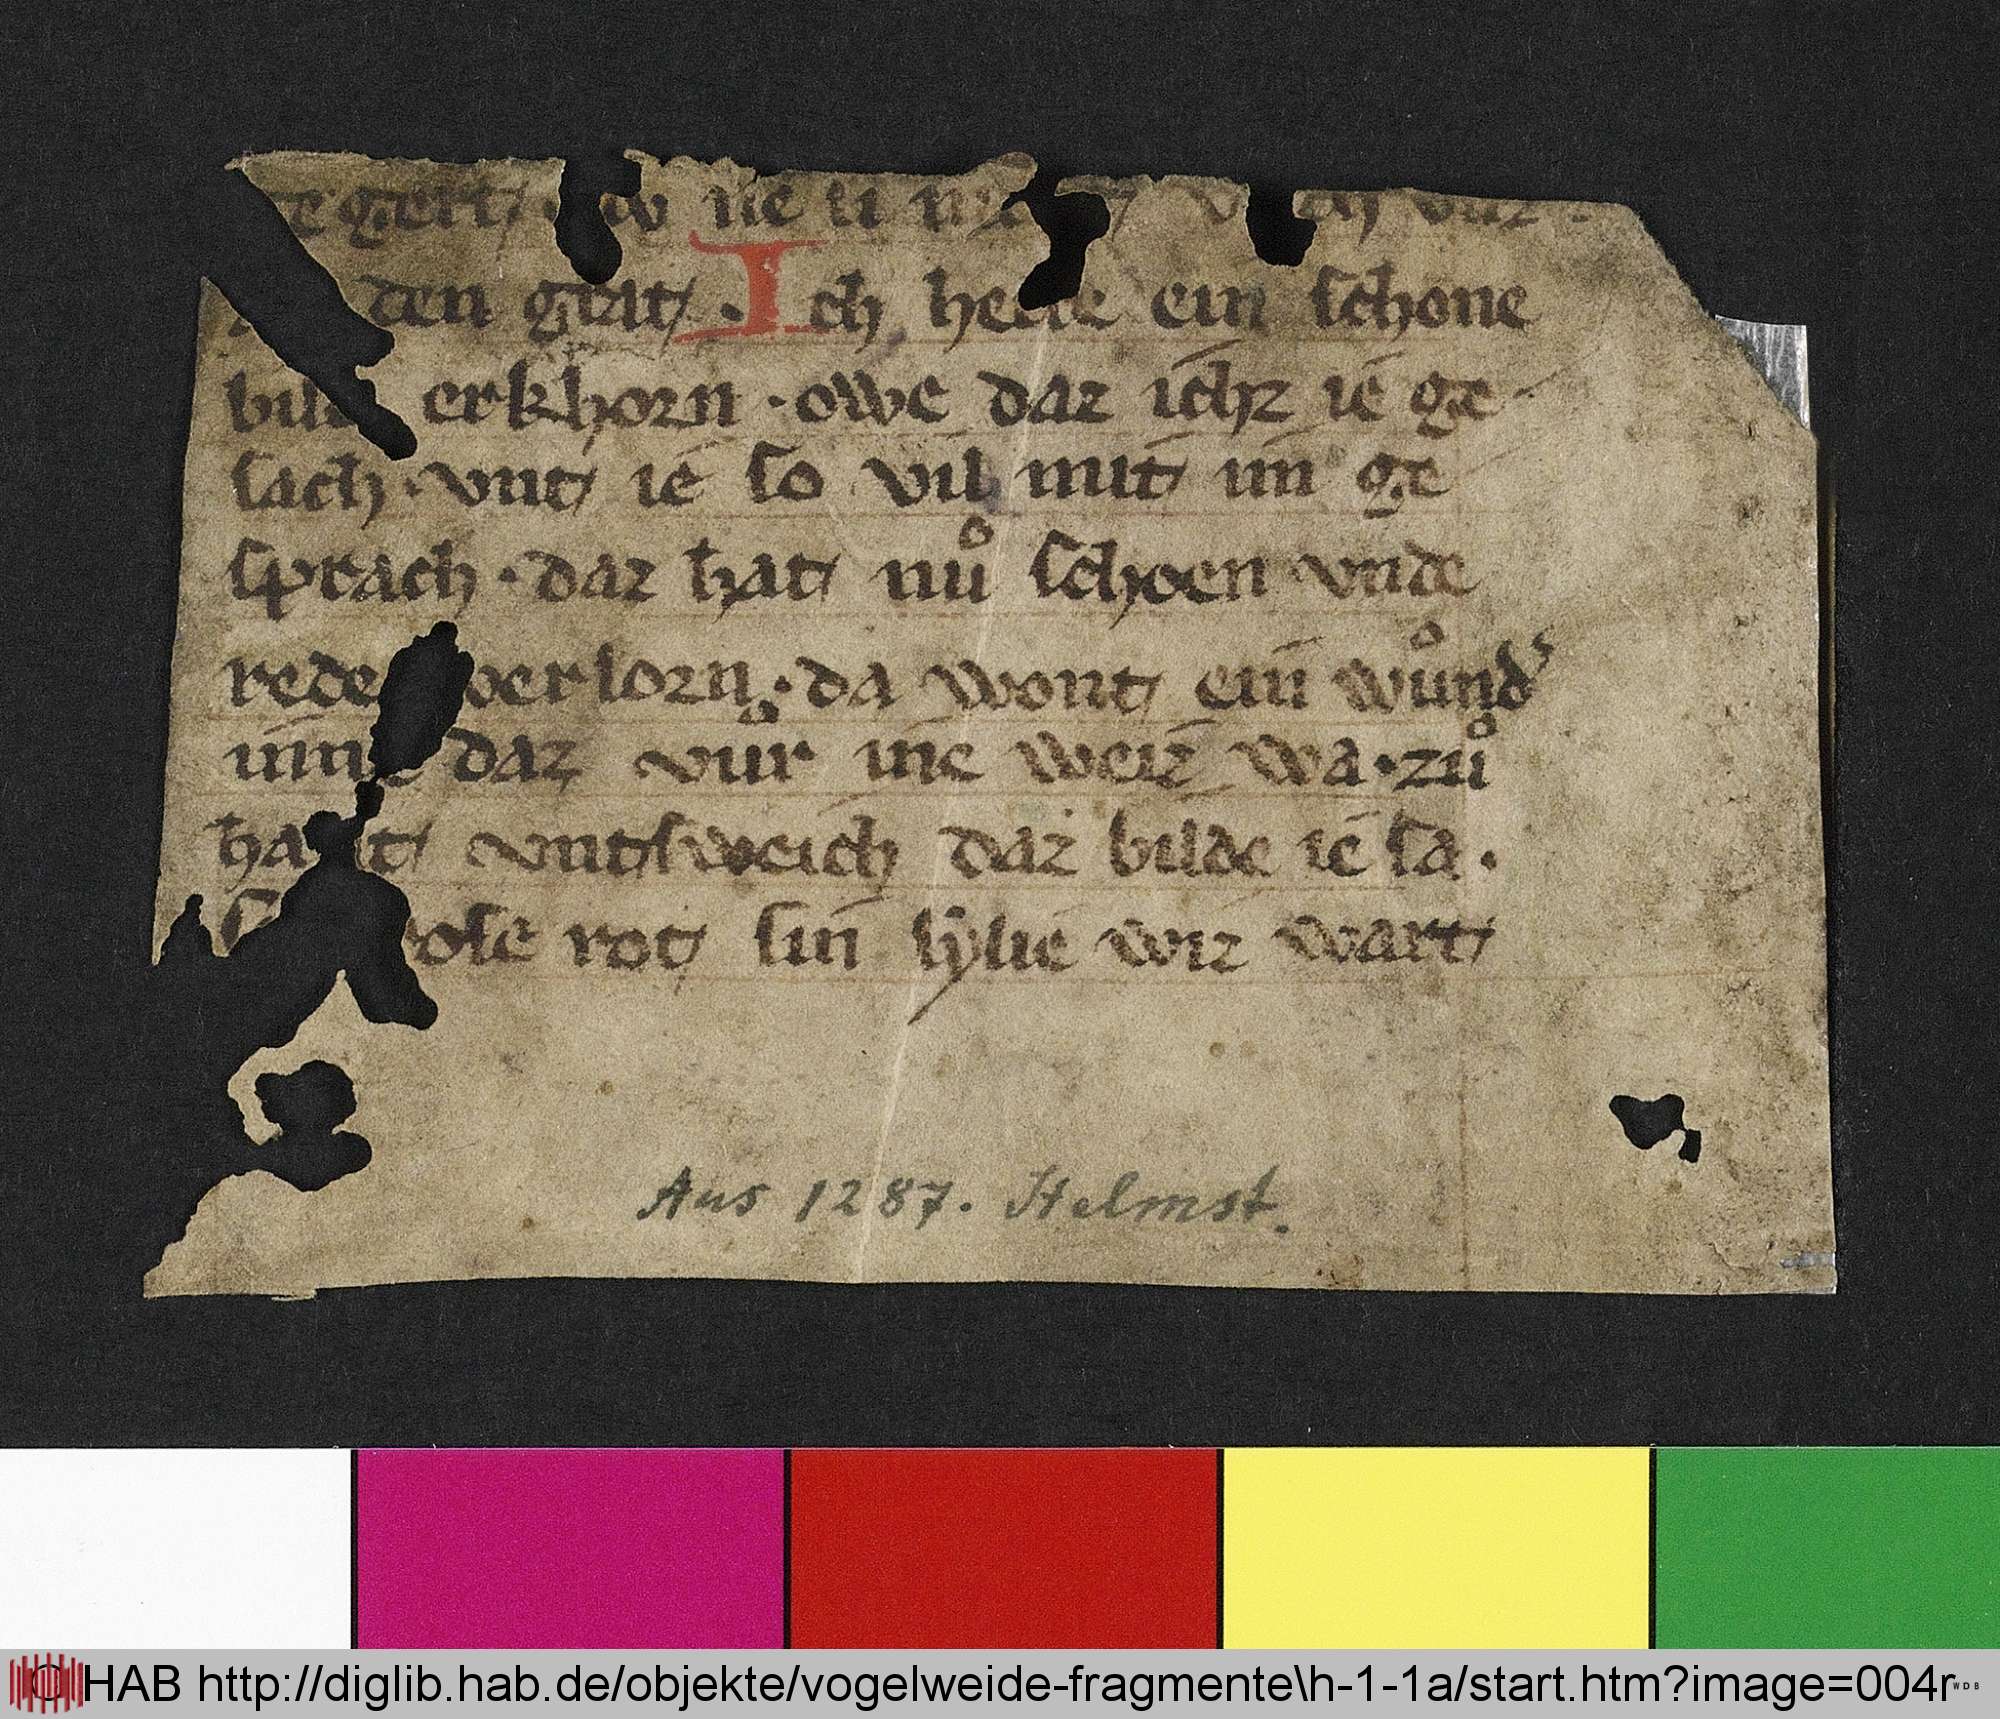 gert
den girit · Ich hette ein schone
bilde erkhorn · owe daz ichz ie ge
sach · vnt ie so vil mit im ge
sprach · daz hat nuͦ schoen vnde
rede verlorn · da wont ein wuͦnd᾿
inne daz vuͦr ine weiz wa · zuͦ
hant vntsweich daz bilde ie sa ·
rose rot sin lylie wiz wart
Aus 1287. Helmst.
© HAB http://diglib.hab.de/objekte/vogelweide-fragmente\h-1-1a/start.htm?image=004r
WDB